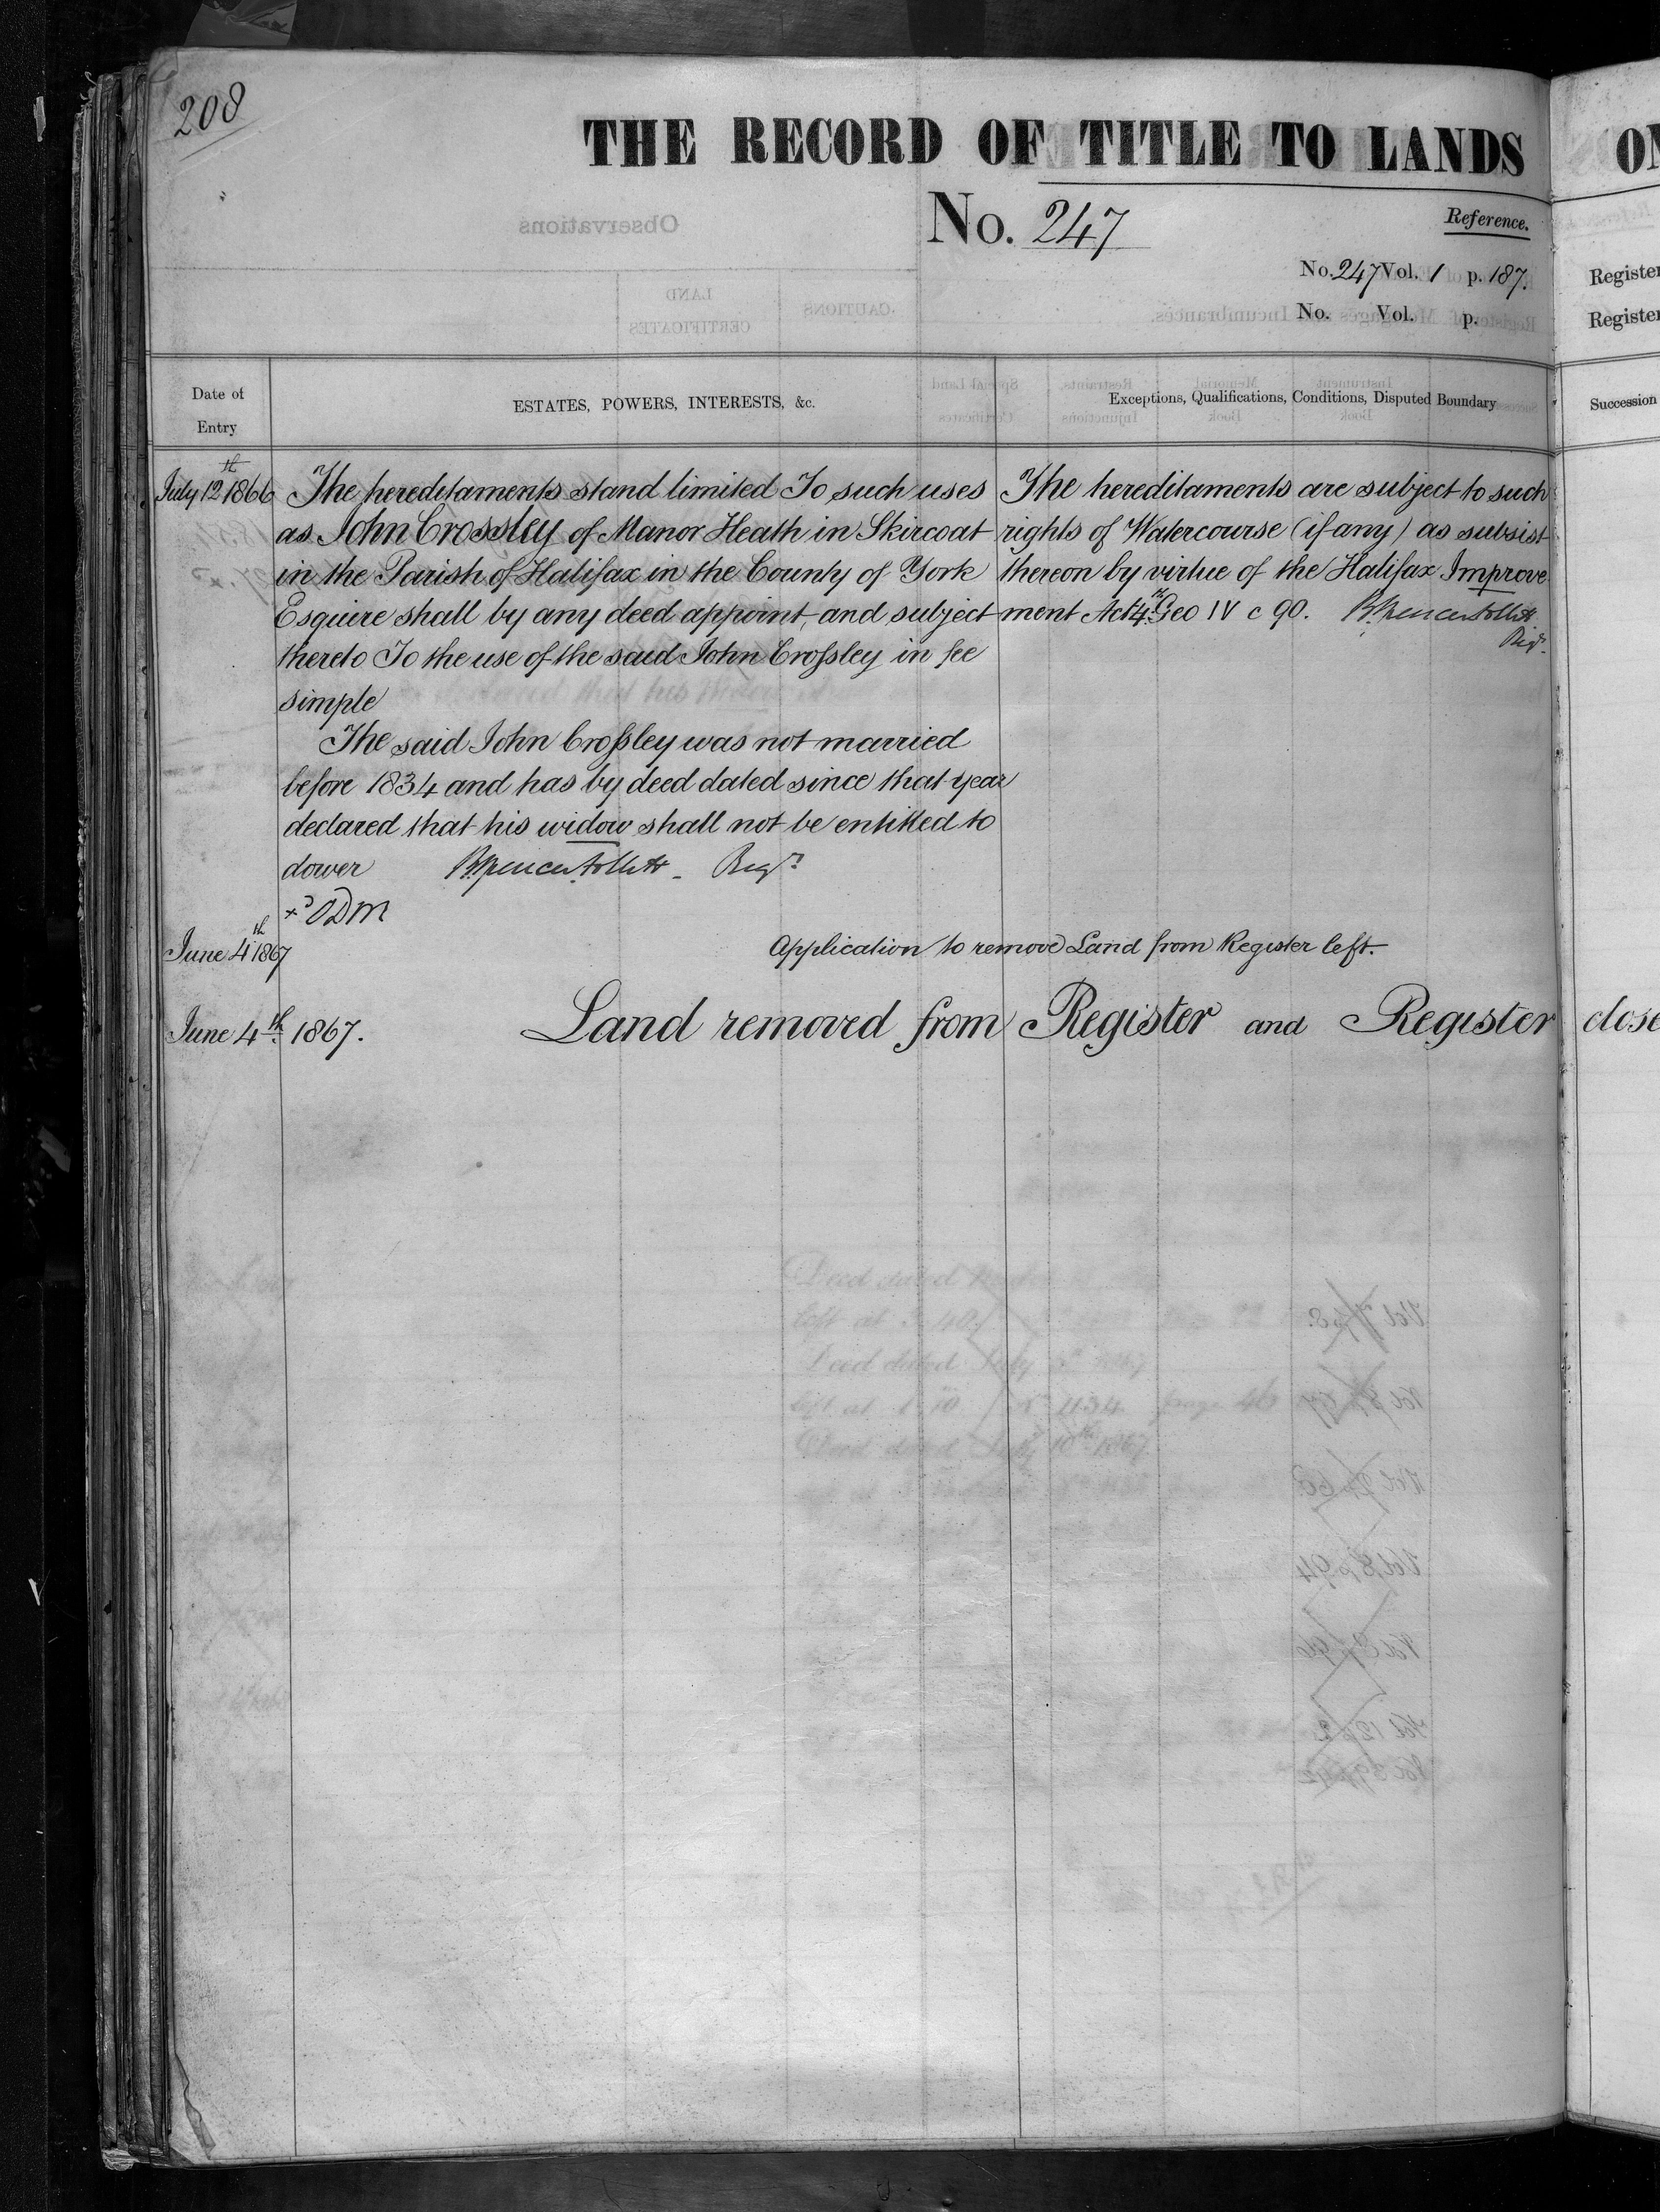 208
THE RECORD OF TITLE TO LANDS
No. 247
Reference.
No. 247 Vol. 1 p. 187.
No. Vol. p.
Register
Register
Date of
Entry
ESTATES, POWERS, INTERESTS, &c.
Exceptions, Qualifications, Conditions, Disputed Boundary
Succession
July 12th 1866
The hereditaments stand limited To such uses
as John Crossley of Manor Heath in Skircoat
in the Parish of Halifax in the County of York
Esquire shall by any deed appoint, and subject
thereto To the use of the said John Crossley in fee
simple
The said John Crossley was not married
before 1834 and has by deed dated since that year
declared that his widow shall not be entitled to
dower Regr
The hereditaments are subject to such
rights of Watercourse (if any) as subsist
thereon by virtue of the Halifax Improve
ment Act 4 Geo IV c 90.
Regr
June 4th 1867
Application to remove Land from Register left.
June 4th 1867. Land removed from Register and Register close